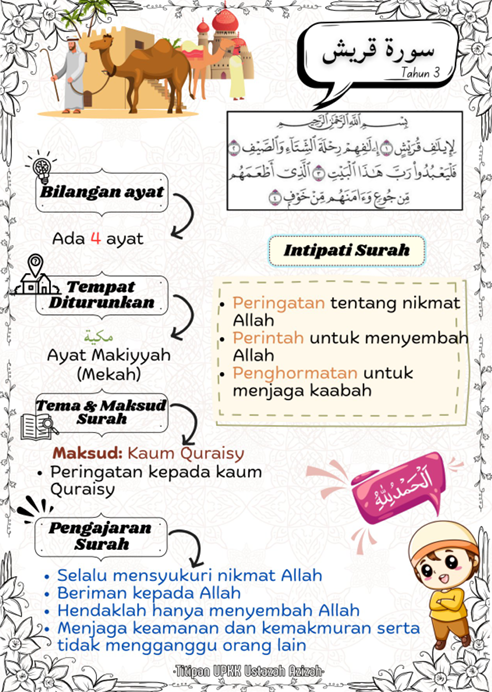 سورة قريش
Tahun 3
بِسْمِ اللَّهِ الرَّحْمَٰنِ الرَّحِيمِ
لِإِيلَٰفِ قُرَيْشٍ ١ إِۦلَٰفِهِمْ رِحْلَةَ ٱلشِّتَآءِ وَٱلصَّيْفِ ٢
فَلْيَعْبُدُوا۟ رَبَّ هَٰذَا ٱلْبَيْتِ ٣ ٱلَّذِىٓ أَطْعَمَهُم
مِّن جُوعٍ وَءَامَنَهُم مِّنْ خَوْفٍۭ ٤
Bilangan ayat
Ada 4 ayat
Tempat
Diturunkan
مكية
Ayat Makiyyah
(Mekah)
Tema & Maksud
Surah
Maksud: Kaum Quraisy
• Peringatan kepada kaum
Quraisy
Intipati Surah
• Peringatan tentang nikmat
Allah
• Perintah untuk menyembah
Allah
• Penghormatan untuk
menjaga kaabah
اَلْحَمْدُلِلّٰهِ
Pengajaran
Surah
• Selalu mensyukuri nikmat Allah
• Beriman kepada Allah
• Hendaklah hanya menyembah Allah
• Menjaga keamanan dan kemakmuran serta
tidak mengganggu orang lain
-Titipan UPKK Ustazah Azizah-